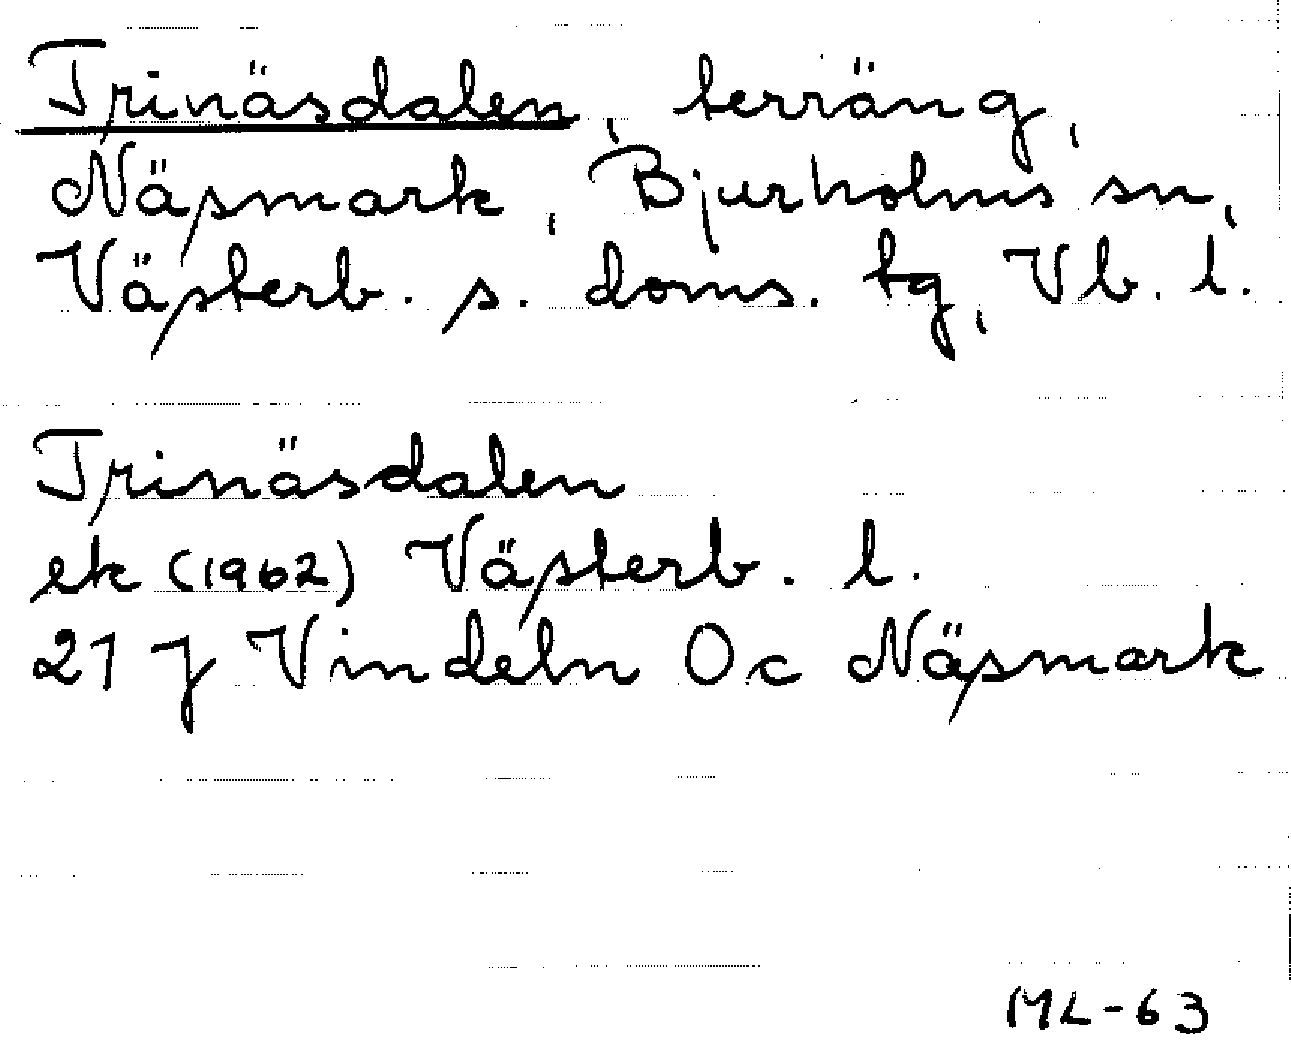 Trinäsdalen, terräng,
Näsmark, Bjurholms sn,
Västerb. s. doms. tg, Vb. l.
Trinäsdalen
ek (1962) Västerb. l.
21 J Vindeln 0c Näsmark
ML-63